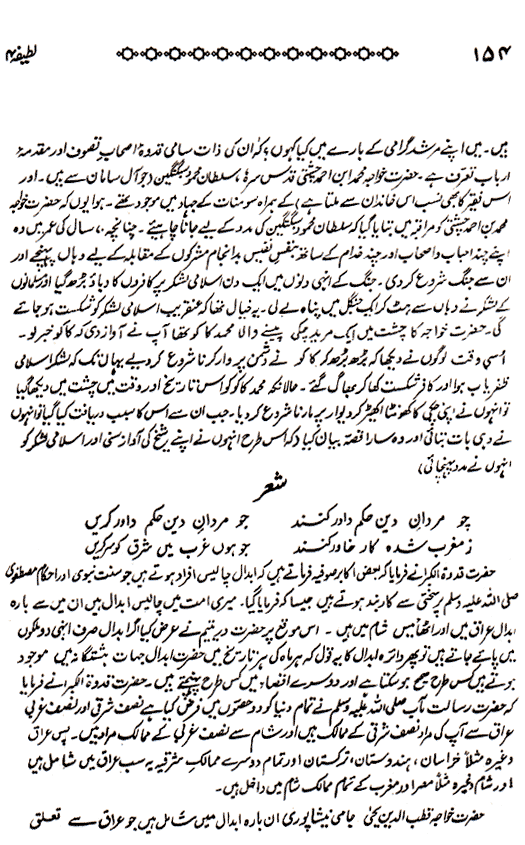 ۱۵۴
لطیفہ ۴
ہیں۔ میں اپنے مرشد گرامی کے بارے میں کیا کہوں؛ کہ اُن کی ذات سامی قدوۃ اصحاب تصوف اور مقدمۂ
ارباب تعرف ہے۔ حضرت خواجہ محمد ابن احمد چشتی قدس سرہٗ، سلطان محمود سبکتگین (جو آل سامان سے ہیں۔ اور
اس فقیر کا بھی نسب اس خاندان سے ملتا ہے) کے ہمراہ سومنات کے جہاد میں موجود تھے۔ ہوا یوں کہ حضرت خواجہ
محمد بن احمد چشتی کو مراقبہ میں بتایا گیا کہ سلطان محمود سبکتگین کی مدد کے لیے جانا چاہیئے۔ چنانچہ، سال کی عمر میں وہ
اپنے چند احباب و اصحاب اور چند خدام کے ساتھ بنفس نفیس بدانجام مشرکوں کے مقابلہ کے لیے وہاں پہنچے اور
ان سے جنگ شروع کردی۔ جنگ کے انہی دنوں میں ایک دن اسلامی لشکر پر کافروں کا دباؤ بڑھ گیا اور مسلمانوں
کے لشکر نے وہاں سے ہٹ کر ایک جنگل میں پناہ لے لی۔ یہ خیال تھا کہ عنقریب اسلامی لشکر کو شکست ہو جائے
گی۔ حضرت خواجہ کا چشت میں ایک مرید چکی پیسنے والا محمد کا کو تھا آپ نے آواز دی کہ کاکو خبر لو۔
اُسی وقت لوگوں نے دیکھا کہ بڑھ بڑھ کر کاکو نے دشمن پر وار کرنا شروع کر دیے یہاں تک کہ لشکر اسلامی
ظفر یاب ہوا اور کافر شکست کھا کر بھاگ گئے۔ حالانکہ محمد کاکو کو اس تاریخ اور وقت میں چشت میں دیکھا گیا
تو انہوں نے اپنی چکی کا کھونٹا اکھیڑ کر دیوار پر مارنا شروع کر دیا۔ جب ان سے اس کا سبب دریافت کیا گیا تو انہوں
نے وہی بات بتائی اور وہ سارا قصہ بیان کیا (کہ اس طرح انہوں نے اپنے شیخ کی آواز سنی اور اسلامی لشکر کو
انہوں نے مدد پہنچائی)
شعر
چو مردان دین حکم داور کنند جو مردانِ دین حکم داور کریں
ز مغرب شدہ کار خاور کنند جو ہوں غرب میں شرق کو سر کریں
حضرت قدوۃ الکبرا نے فرمایا کہ بعض اکابر صوفیہ فرماتے ہیں کہ ابدال چالیس افراد ہوتے ہیں جو سنت نبوی اور احکام مصطفوی
صلی اللہ علیہ وسلم پر سختی سے کاربند ہوتے ہیں جیسا کہ فرمایا گیا۔ میری امت میں چالیس ابدال ہیں ان میں سے بارہ
ابدال عراق میں اور اٹھائیس شام میں ہیں۔ اس موقع پر حضرت دریتیم نے عرض کیا کہ اگر ابدال صرف انہی دو ملکوں
میں پائے جاتے ہیں تو پھر دائرہ ابدال کا یہ قول کہ ہر ماہ کی ہر تاریخ میں حضرت ابدال جہات ہشتگانہ میں موجود
ہوتے ہیں کس طرح صحیح ہو سکتا ہے اور دوسرے اقصاء میں کس طرح پہنچتے ہیں۔ حضرت قدوۃ الکبرا نے فرمایا
کہ حضرت رسالت مآب صلی اللہ علیہ وسلم نے تمام دنیا کو دو حصوں میں فرض کیا ہے نصف شرقی اور نصف غربی
عراق سے آپ کی مراد نصف شرقی کے ممالک ہیں اور شام سے نصف غربی کے ممالک مراد ہیں۔ پس عراق
وغیرہ مثلاً خراسان، ہندوستان، ترکستان اور تمام دوسرے ممالک مشرقیہ یہ سب عراق میں شامل ہیں
اور شام وغیرہ مثلاً مصر اور مغرب کے تمام ممالک شام میں داخل ہیں۔
حضرت خواجہ قطب الدین یحییٰ جامی نیشاپوری ان بارہ ابدال میں شامل ہیں جو عراق سے تعلق